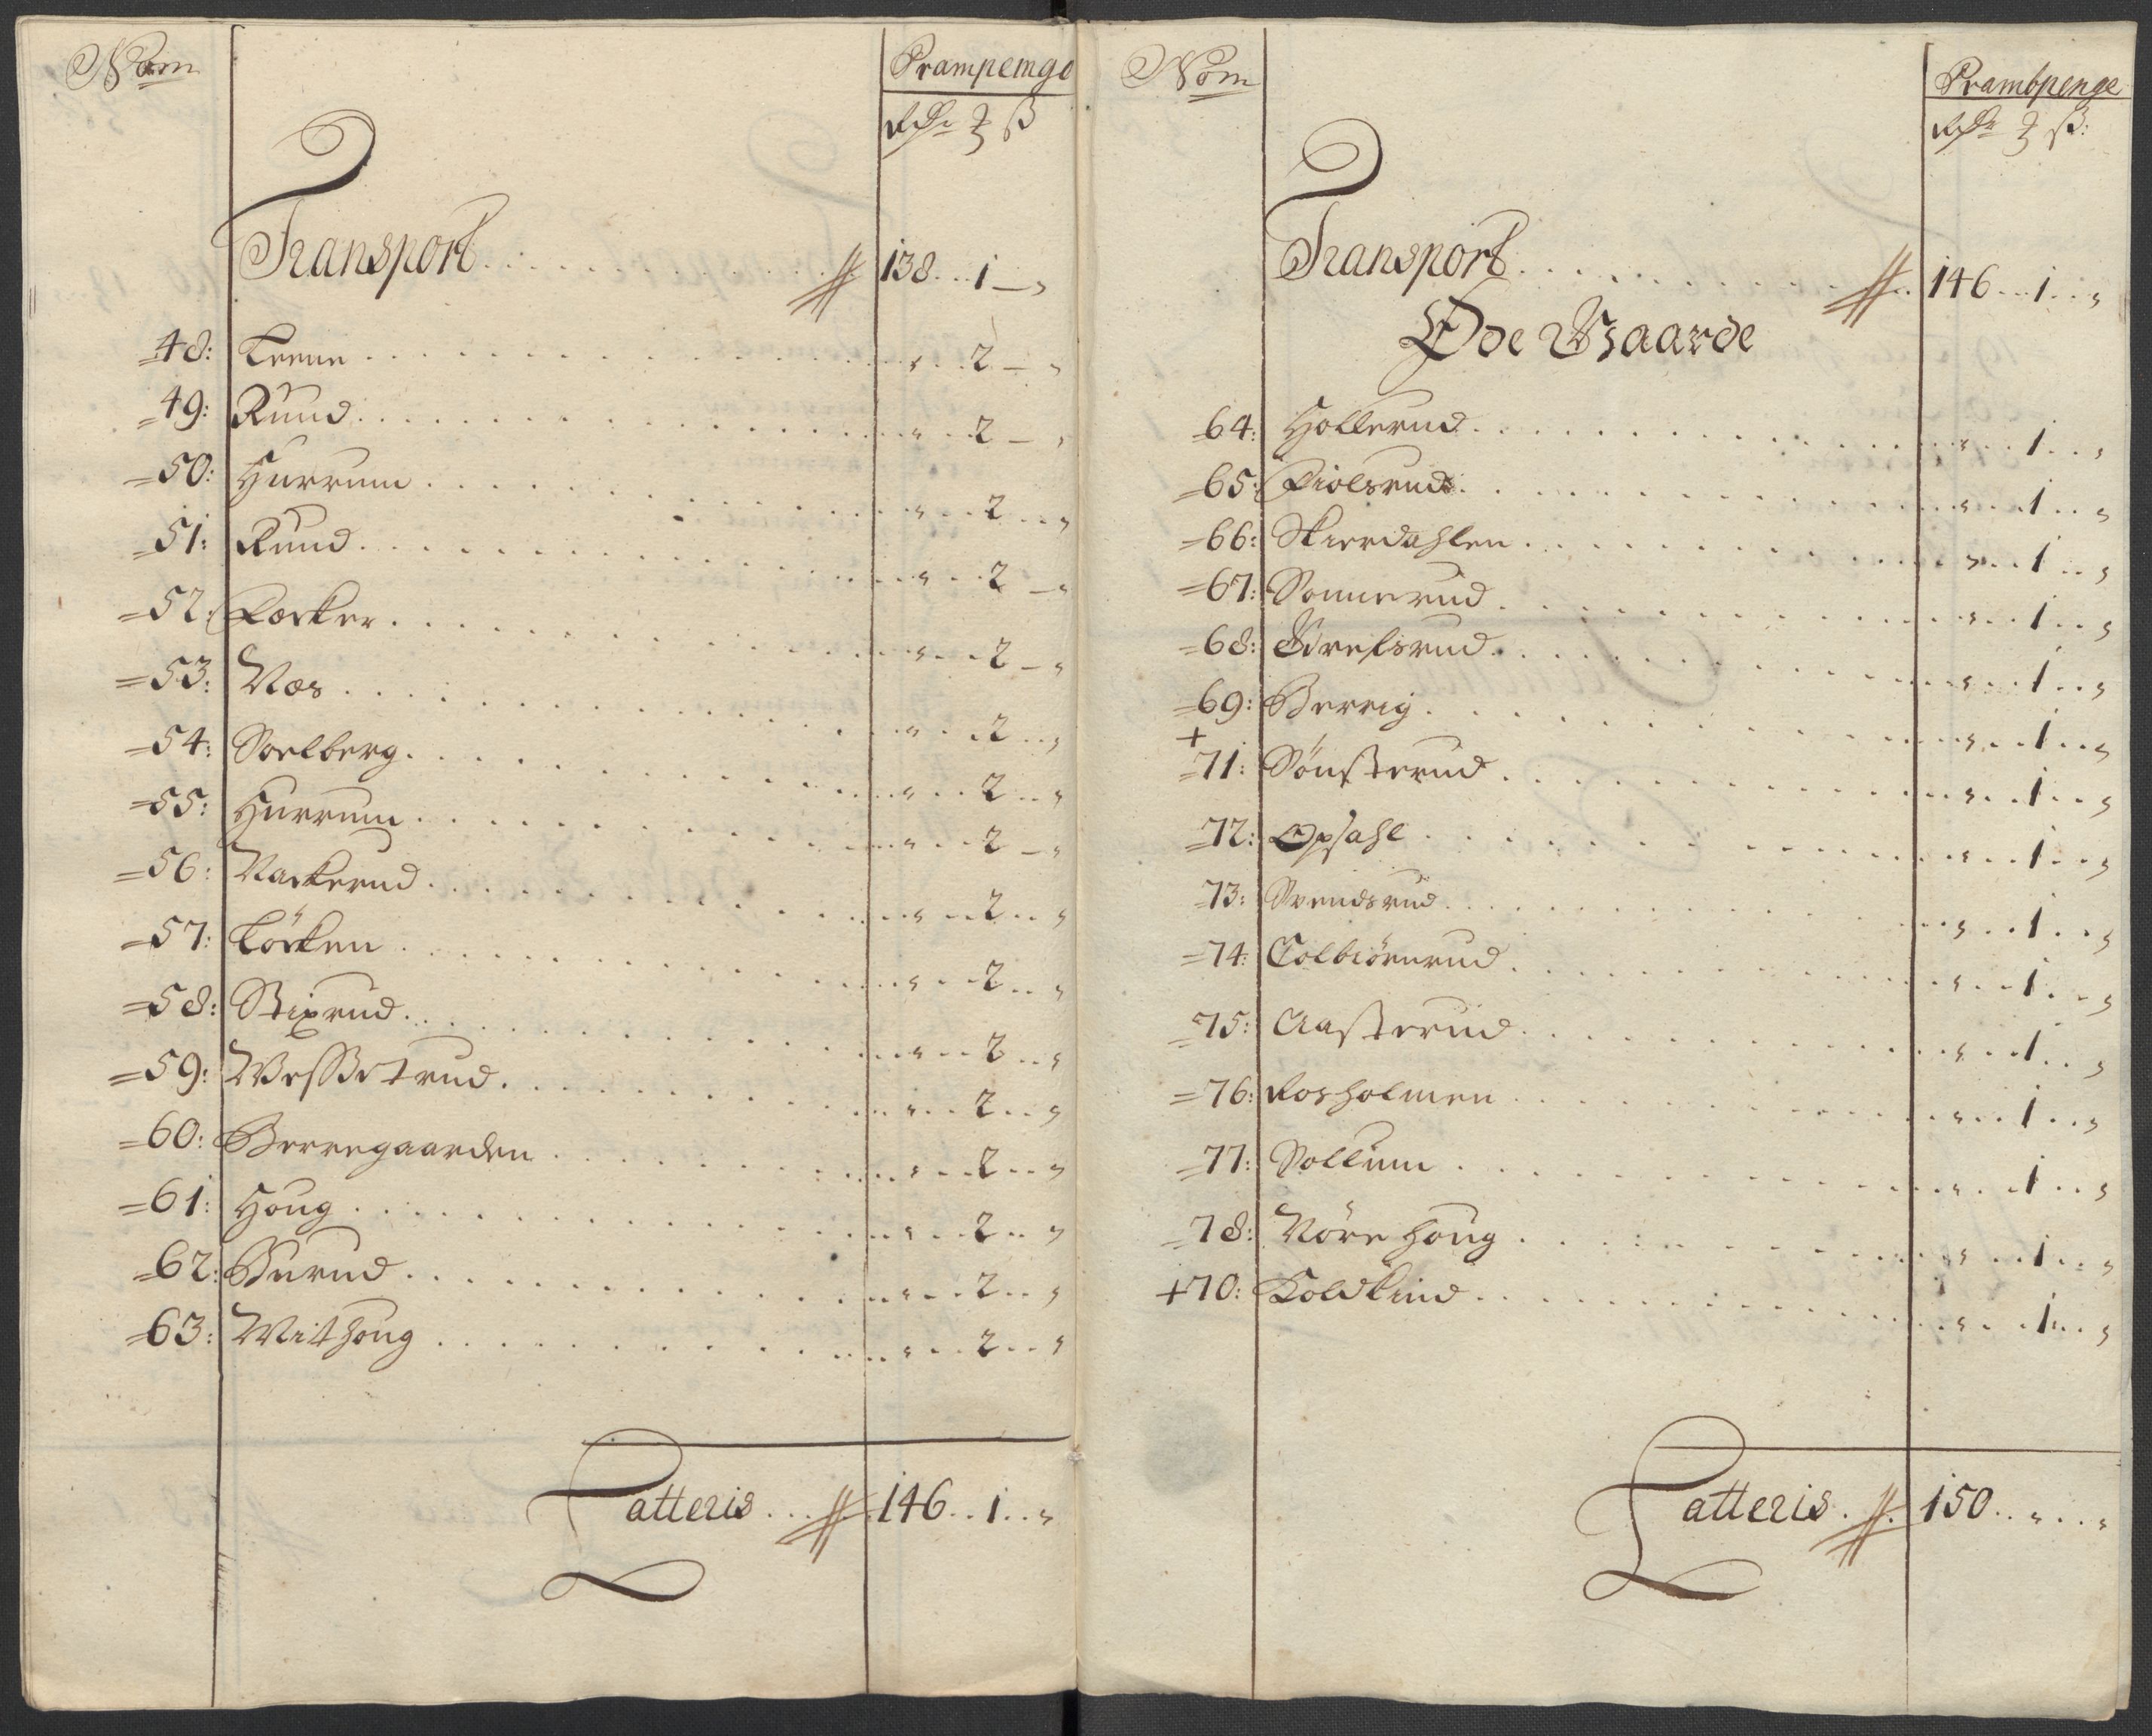 Nom
Prampemge
Rdr ₰ ß
Transport 138 .. 1 —
48: Teene .. 2 —
49: Ruud .. 2 —
50: Hurrum .. 2 ..
51: Ruud .. 2 —
52: Lærker .. 2 —
53: Næs .. 2 ..
54: Soelberg .. 2 ..
55: Hurrum .. 2 —
56: Nackerud .. 2 ..
57: Körken .. 2 ..
58: Stixrud .. 2 ..
59: Wesßetrud .. 2 ..
60: Berregaarden .. 2 ..
61: Houg .. 2 ..
62: Burud .. 2 ..
63: Withoug .. 2 ..
Latteris .. 146 .. 1 ..
Nom
Prambpenge
Rdr ₰ ß:
Transport .. 146 .. 1 ..
Øde Gaarde
64: Hollerud .. 1 ..
65: Fiolsrud .. 1 ..
66: Skierdahlen .. 1 ..
67: Sonnerud .. 1 ..
68: Grefsrud .. 1 ..
69: Berrig .. 1 ..
+
71: Sönsterud .. 1 ..
72: Opsahl .. 1 ..
73: Svendsrud .. 1 ..
74: Colbiörnrud .. 1 ..
75: Aasterud .. 1 ..
76: Rosholmen .. 1 ..
77: Sollum .. 1 ..
78: Nöre houg .. 1 ..
+70: Koldkind .. 1 ..
Latteris .. 150 ..